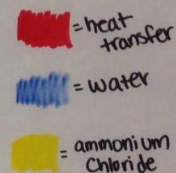 = heat
transfer
= water
= ammonium
chloride